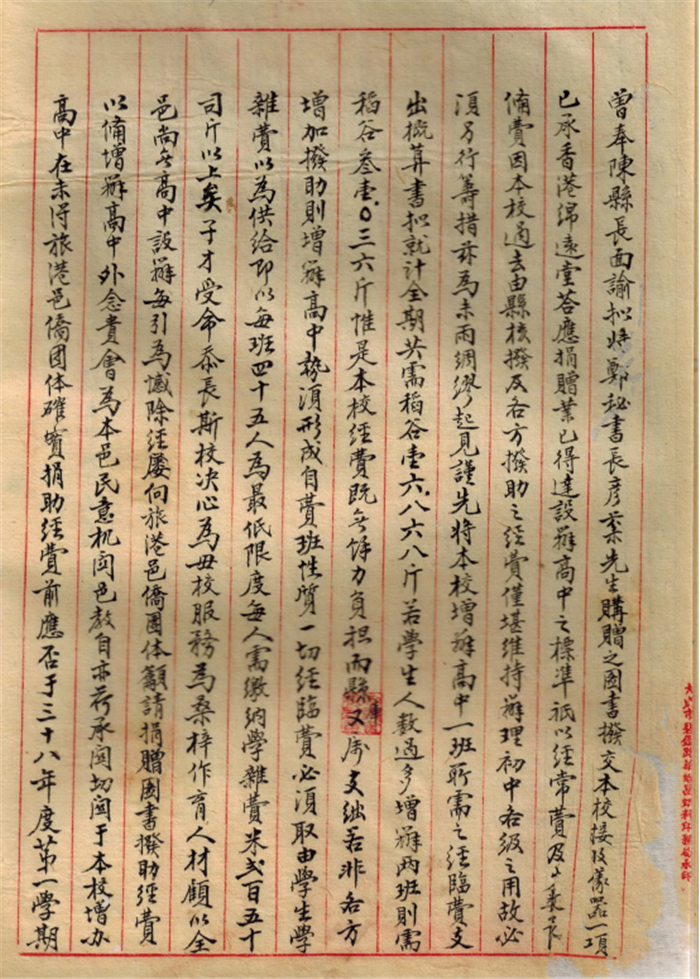 曾奉陳縣長面諭拟將鄭秘書長彥棻先生購贈之圖書撥交本校接收儀器一項
已承香港綿遠堂荅應捐贈業已得達設辦高中之標準祇以經常費及
備費因本校過去由縣核撥及各方撥助之經費僅堪維持辦理初中各級之用故必
須另行籌措茲為未雨綢繆起見謹先將本校增辦高中一班所需之經臨費支
出概算書拟就計全期共需稻谷壹六.八六八斤若學生人数過多增辦两班則需
稻谷叁壹.〇三六斤惟是本校經費既無餘力負担而縣庫又属支絀若非各方
增加撥助則增辦高中勢須形成自費班性質一切經臨費必須取由學生學
雜費以為供給即以每班四十五人為最低限度每人需繳纳學雜費米弍百五十
司斤以上矣子才受命忝長斯校决心為母校服務為桑梓作育人材顧以全
邑尚無高中設辦每引為憾除經屡向旅港邑僑團体籲請捐贈圖書撥助經費
以備增辦高中外念貴會為本邑民意机関邑教自亦荷承関切関于本校增办
高中在未得旅港邑僑團体確實捐助經費前應否于三十八年度第一學期